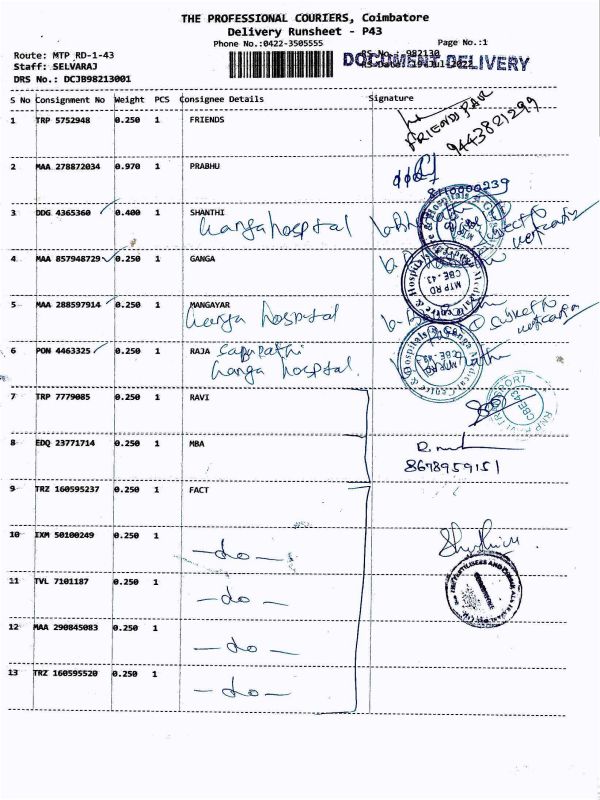 THE PROFESSIONAL COURIERS, Coimbatore
Delivery Runsheet - P43
Phone No.:0422-3505555 Page No.:1
Route: MTP RD-1-43 RS No.: 982130
Staff: SELVARAJ DOCUMENT DELIVERY
DRS No.: DCJB98213001
S No Consignment No Weight PCS Consignee Details Signature
1 TRP 5752948 0.250 1 FRIENDS
FRIENDS PAIR
9443821299
2 MAA 278872034 0.970 1 PRABHU
3 DDG 4365360 0.400 1 SHANTHI
Ganga hospital
4 MAA 857948729 0.250 1 GANGA
MTP RD
CBE.43
5 MAA 288597914 0.250 1 MANGAYAR
Ganga hospital
6 PON 4463325 0.250 1 RAJA Sabapathi
Ganga hospital.
7 TRP 7779085 0.250 1 RAVI
CBE-43
8 EDQ 23771714 0.250 1 MBA
8678959151
9 TRZ 160595237 0.250 1 FACT
10 IXM 50100249 0.250 1
- do -
11 TVL 7101187 0.250 1
- do -
12 MAA 290845083 0.250 1
- do -
13 TRZ 160595520 0.250 1
- do -